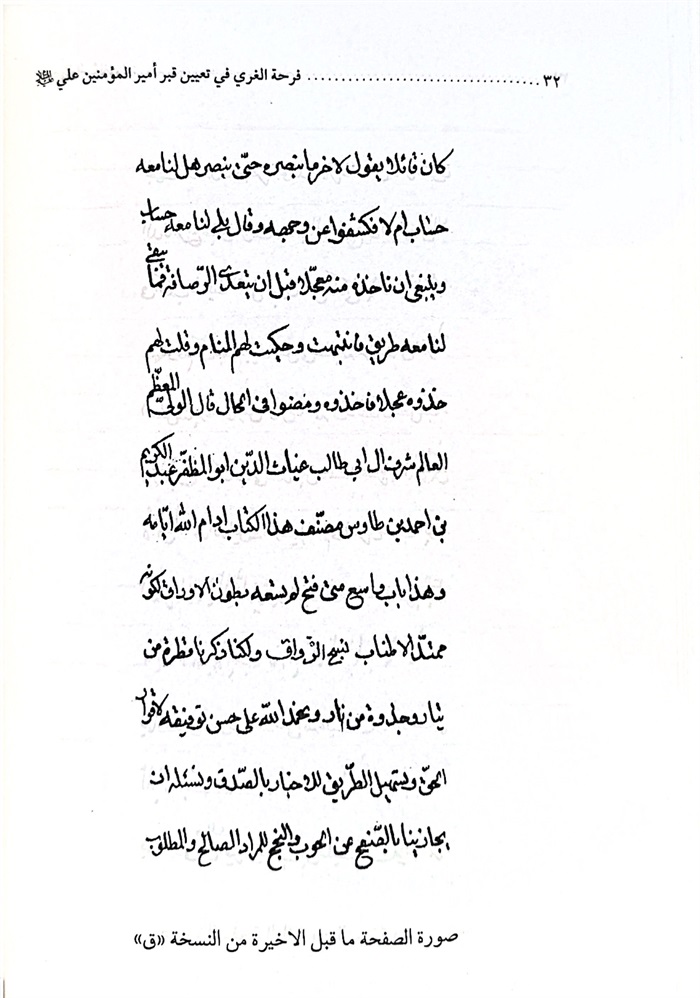 ٣٢ .................................. فرحة الغري في تعيين قبر أمير المؤمنين علي
كان قائلا يقول لاخر ما تبصره حتى تبصر هل لنا معه
حساب ام لا فكشفوا عن وجهه وقال بلى لنا معه حساب
وينبغي ان ناخذه منه معجلا قبل ان يتعدى الرّصافة فما يبقى
لنا معه طريق فانتبهت وحكيت لهم المنام وقلت لهم
خذوه عجلا فاخذوه ومضوا في الحال قال الولي المعظّم
العالم شرف ال ابي طالب غياث الدّين ابو المظفّر عبد الكريم
بن احمد بن طاوس مصنّف هذا الكتاب ادام الله ايّامه
وهذا باب واسع متى فتح لم يسعه بطون الاوراق لكونه
ممتدّ الاطناب الرّواق ولكنا ذكرنا قطرة من
تيار وجذوة من نار ونحمد الله على حسن توفيقه لاقرار
الحق وتسهيل الطّريق للاخبار بالصّدق ونسئله ان
يجازينا بالصّفح عن الحوب والنجح للمراد الصالح والمطلوب
صورة الصفحة ما قبل الاخيرة من النسخة «ق»